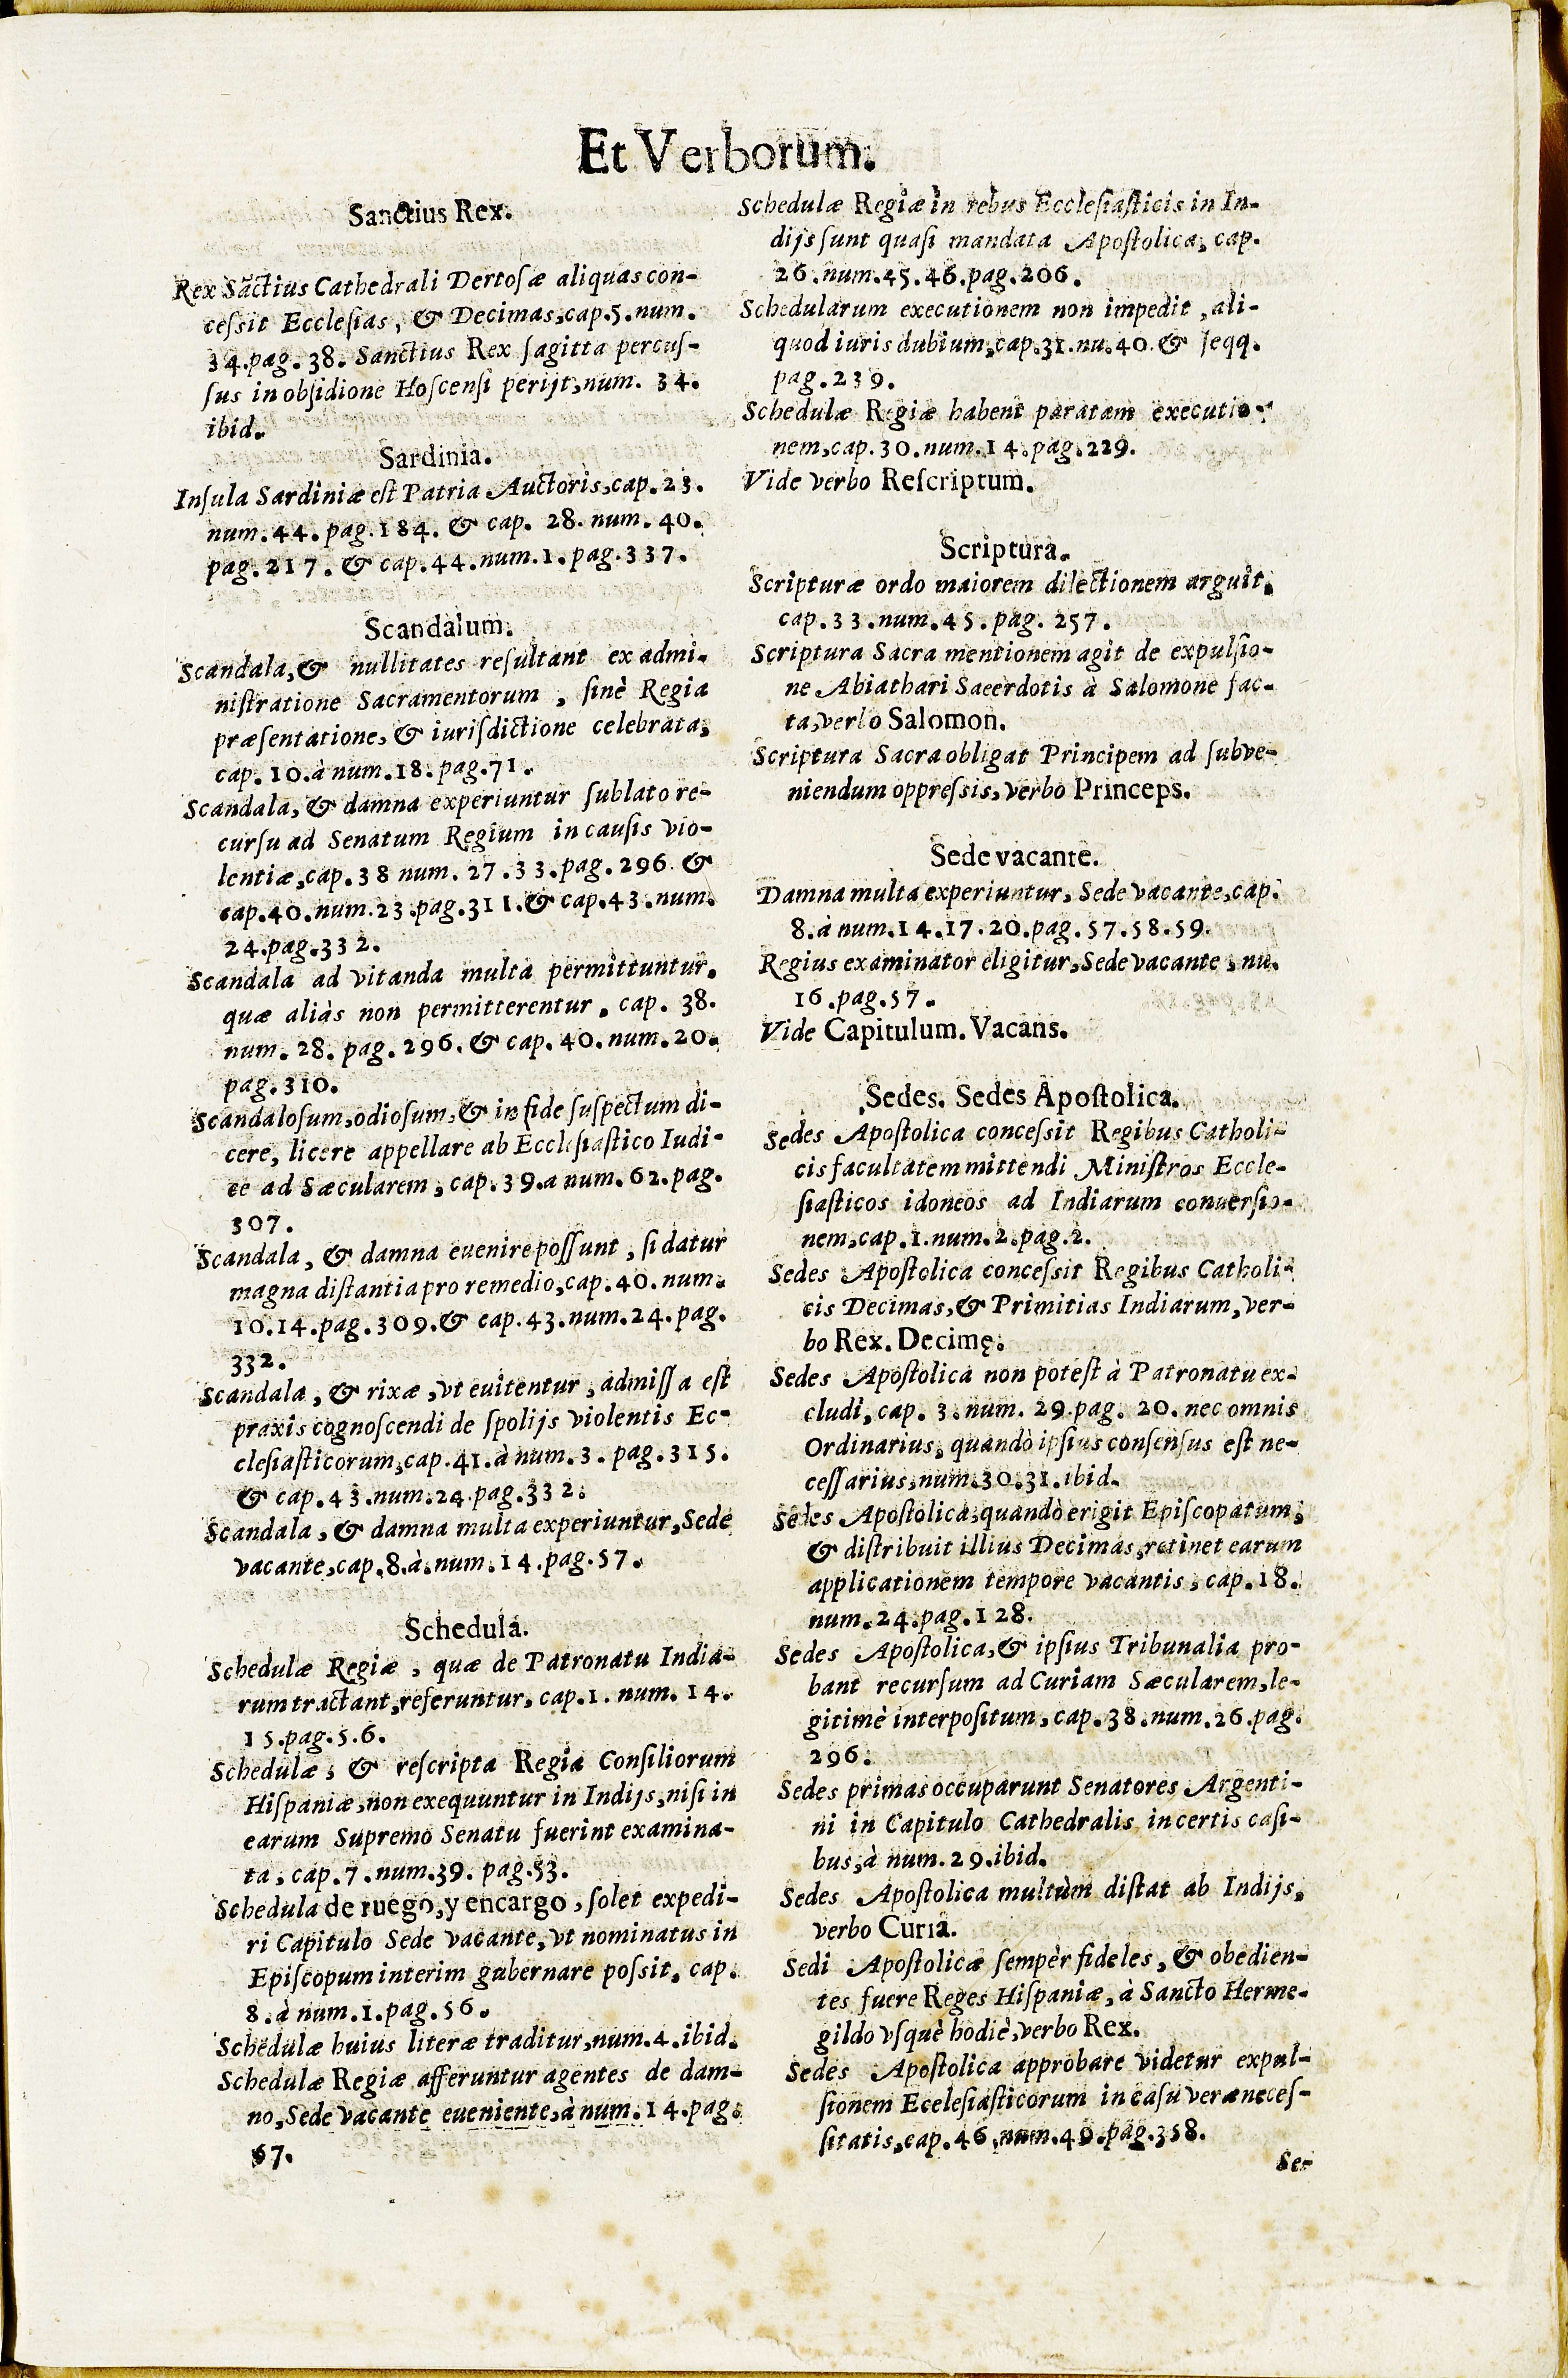 Et Verborum.
Sanctius Rex.
Rex Sãctius Cathedrali Dertoſæ aliquas con-
ceſsit Eccleſias, & Decimas, cap.5.num.
34.pag.38. Sanctius Rex ſagitta percuſ-
ſus in obſidione Hoſcenſi perijt, num. 34.
ibid.
Sardinia.
Inſula Sardiniæ eſt Patria Auctoris, cap.23.
num.44.pag.184. & cap. 28. num. 40.
pag.217. & cap.44.num.1.pag.337.
Scandalum.
Scandala, & nullitates reſultant ex admi-
niſtratione Sacramentorum, ſinè Regia
præſentatione, & iuriſdictione celebrata,
cap. 10. à num.18. pag.71.
Scandala, & damna experiuntur ſublato re-
curſu ad Senatum Regium in cauſis vio-
lentiæ, cap.38 num. 27.33.pag.296. &
cap.40.num.23.pag.311.& cap.43.num.
24.pag.332.
Scandala ad vitanda multa permittuntur.
quæ aliàs non permitterentur, cap. 38.
num. 28. pag. 296. & cap. 40. num. 20.
pag.310.
Scandaloſum, odioſum, & in fide ſuſpectum di-
cere, licere appellare ab Eccleſiaſtico Iudi-
ce ad Sæcularem, cap.39.a num.62.pag.
307.
Scandala, & damna euenire poſſunt, ſi datur
magna diſtantia pro remedio, cap.40.num.
10.14.pag.309.& cap.43.num.24.pag.
332.
Scandala, & rixæ, vt euitentur, admiſſa eſt
praxis cognoſcendi de ſpolijs violentis Ec-
cleſiaſticorum, cap.41.à num.3. pag.315.
& cap.43.num.24.pag.332.
Scandala, & damna multa experiuntur, Sede
vacante, cap.8.à.num.14.pag.57.
Schedula.
Schedulæ Regiæ, quæ de Patronatu India-
rum tractant, referuntur, cap.1. num. 14.
15.pag.5.6.
Schedulæ, & reſcripta Regia Conſiliorum
Hiſpaniæ, non exequuntur in Indijs, niſi in
earum Supremo Senatu fuerint examina-
ta, cap.7.num.39. pag.53.
Schedula de ruego, y encargo, ſolet expedi-
ri Capitulo Sede vacante, vt nominatus in
Epiſcopum interim gubernare poſsit, cap.
8.à num.1.pag.56.
Schedulæ huius literæ traditur, num.4.ibid.
Schedulæ Regiæ afferuntur agentes de dam-
no, Sede vacante eueniente, à num.14.pag.
57.
Schedulæ Regiæ in rebus Eccleſiaſticis in In-
dijs ſunt quaſi mandata Apoſtolica, cap.
26.num.45.46.pag.206.
Schedularum executionem non impedit, ali-
quod iuris dubium, cap.31.nu.40.& ſeqq.
pag.239.
Schedulæ Regiæ habent paratam executio-
nem, cap.30.num.14.pag.229.
Vide verbo Reſcriptum.
Scriptura.
Scripturæ ordo maiorem dilectionem arguit.
cap.33.num.45.pag. 257.
Scriptura Sacra mentionem agit de expulſio-
ne Abiathari Saeerdotis à Salomone fac-
ta, verbo Salomon.
Scriptura Sacra obligat Principem ad ſubve-
niendum oppreſsis, verbo Princeps.
Sede vacante.
Damna multa experiuntur, Sede vacante, cap.
8.à num.14.17.20.pag.57.58.59.
Regius examinator eligitur, Sede vacante, nu.
16.pag.57.
Vide Capitulum. Vacans.
Sedes. Sedes Apoſtolica.
Sedes Apoſtolica conceſsit Regibus Catholi-
cis facultatem mittendi Miniſtros Eccle-
ſiaſticos idoneos ad Indiarum conuerſio-
nem, cap.1.num.2.pag.2.
Sedes Apoſtolica conceſsit Regibus Catholi-
cis Decimas, & Primitias Indiarum, ver-
bo Rex. Decimę.
Sedes Apoſtolica non poteſt à Patronatu ex-
cludi, cap. 3.num. 29.pag. 20. nec omnis
Ordinarius, quandò ipſius conſenſus eſt ne-
ceſſarius, num.30.31.ibid.
Sedes Apoſtolica, quandò erigit Epiſcopatum,
& diſtribuit illius Decimas, retinet earum
applicationem tempore vacantis, cap.18.
num.24.pag.128.
Sedes Apoſtolica, & ipſius Tribunalia pro-
bant recurſum ad Curiam Sæcularem, le-
gitimè interpoſitum, cap.38.num.26.pag.
296.
Sedes primas occuparunt Senatores Argenti-
ni in Capitulo Cathedralis in certis caſi-
bus, à num.29.ibid.
Sedes Apoſtolica multùm diſtat ab Indijs,
verbo Curia.
Sedi Apoſtolicæ ſempèr fideles, & obedien-
tes fuere Reges Hiſpaniæ, à Sancto Herme-
gildo vſquè hodiè, verbo Rex.
Sedes Apoſtolica approbare videtur expul-
ſionem Eceleſiaſticorum in caſu veræ neceſ-
ſitatis, cap.46.num.40.pag.358.
Se-